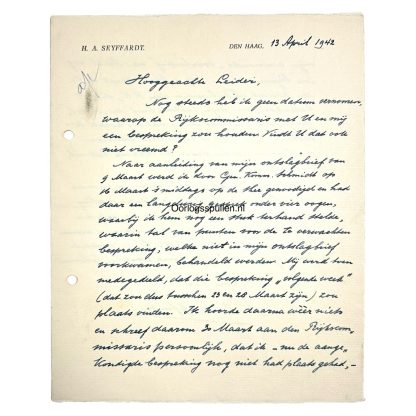 H. A. SEYFFARDT.
DEN HAAG, 13 April 1942
Hooggeachte Leider,
Nog steeds heb ik geen datum vernomen,
waarop de Rijkscommissaris met U en mij
een bespreking zou houden. Vindt U dat ook
niet vreemd?
Naar aanleiding van mijn ontslagbrief van
9 Maart werd ik door Gen. Komm. Schmidt op
Maart 's middags op de thee genodigd en had
daar een langdurig gesprek onder vier oogen,
waarbij ik hem nog een stuk ter hand stelde,
waarin tal van punten voor de te verwachten
bespreking, welke niet in mijn ontslagbrief
voorkwamen, behandeld werden. Mij werd toen
medegedeeld, dat die bespreking "volgende week"
(dat zou dus tusschen 23 en 28 Maart zijn) zou
plaats vinden. Ik hoorde daarna wéér niets
en schreef daarom 30 Maart aan den Rijkscom-
missaris persoonlijk, dat ik - nu de aange-
kondigde bespreking nog niet had plaats gehad, -
Oorlogsspullen.nl